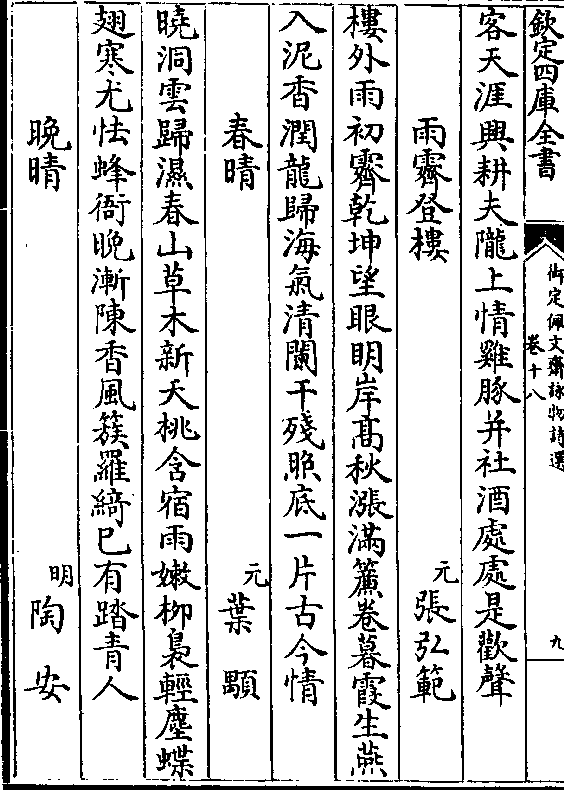 欽定四庫全書
御定佩文齋詠物詩選
卷十八
九
客天涯興耕夫隴上情雞豚并社酒處處是歡聲
雨霽登樓
元
張弘範
樓外雨初霽乾坤望眼明岸髙秋漲滿簾卷暮霞生燕
入泥香潤龍歸海氣清闌干殘照底一片古今情
春晴
元
葉顒
曉洞雲歸濕春山草木新夭桃含宿雨嫩柳裊輕塵蝶
翅寒尤怯蜂衙晚漸陳香風簇羅綺已有踏青人
晚晴
明
陶安